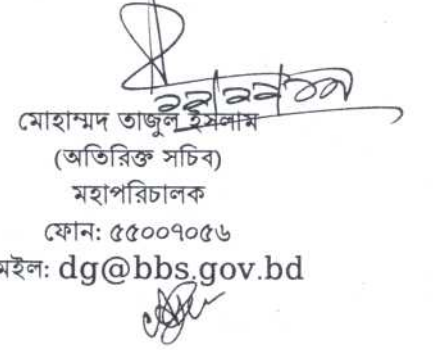 মোহাম্মদ তাজুল ইসলাম
(অতিরিক্ত সচিব)
মহাপরিচালক
ফোন: ৫৫০০৭০৫৬
মেইল: dg@bbs.gov.bd